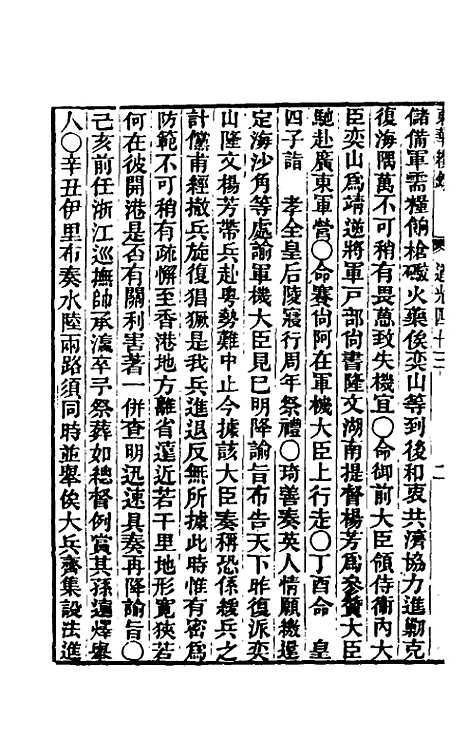 東華續錄　道光四十三　二
儲備軍需糧餉槍礮火藥俟奕山等到後和衷共濟協力進勦克
復海隅萬不可稍有畏葸致失機宜○命御前大臣領侍衞內大
臣奕山爲靖逆將軍戸部尙書隆文湖南提督楊芳爲參贊大臣
馳赴廣東軍營○命賽尙阿在軍機大臣上行走○丁酉命　皇
四子詣　孝全皇后陵寢行周年祭禮○琦善奏英人情願繳還
定海沙角等處諭軍機大臣見已明降諭旨布告天下昨復派奕
山隆文楊芳帶兵赴粤勢難中止今據該大臣奏稱恐係緩兵之
計儻甫經撤兵旋復猖獗是我兵進退反無所據此時惟有密爲
防範不可稍有疏懈至香港地方離省遠近若干里地形寬狹若
何在彼開港是否有關利害著一併查明迅速具奏再降諭旨○
己亥前任浙江巡撫帥承瀛卒予祭葬如總督例賞其孫遠燡舉
人○辛丑伊里布奏水陸兩路須同時並舉俟大兵齊集設法進